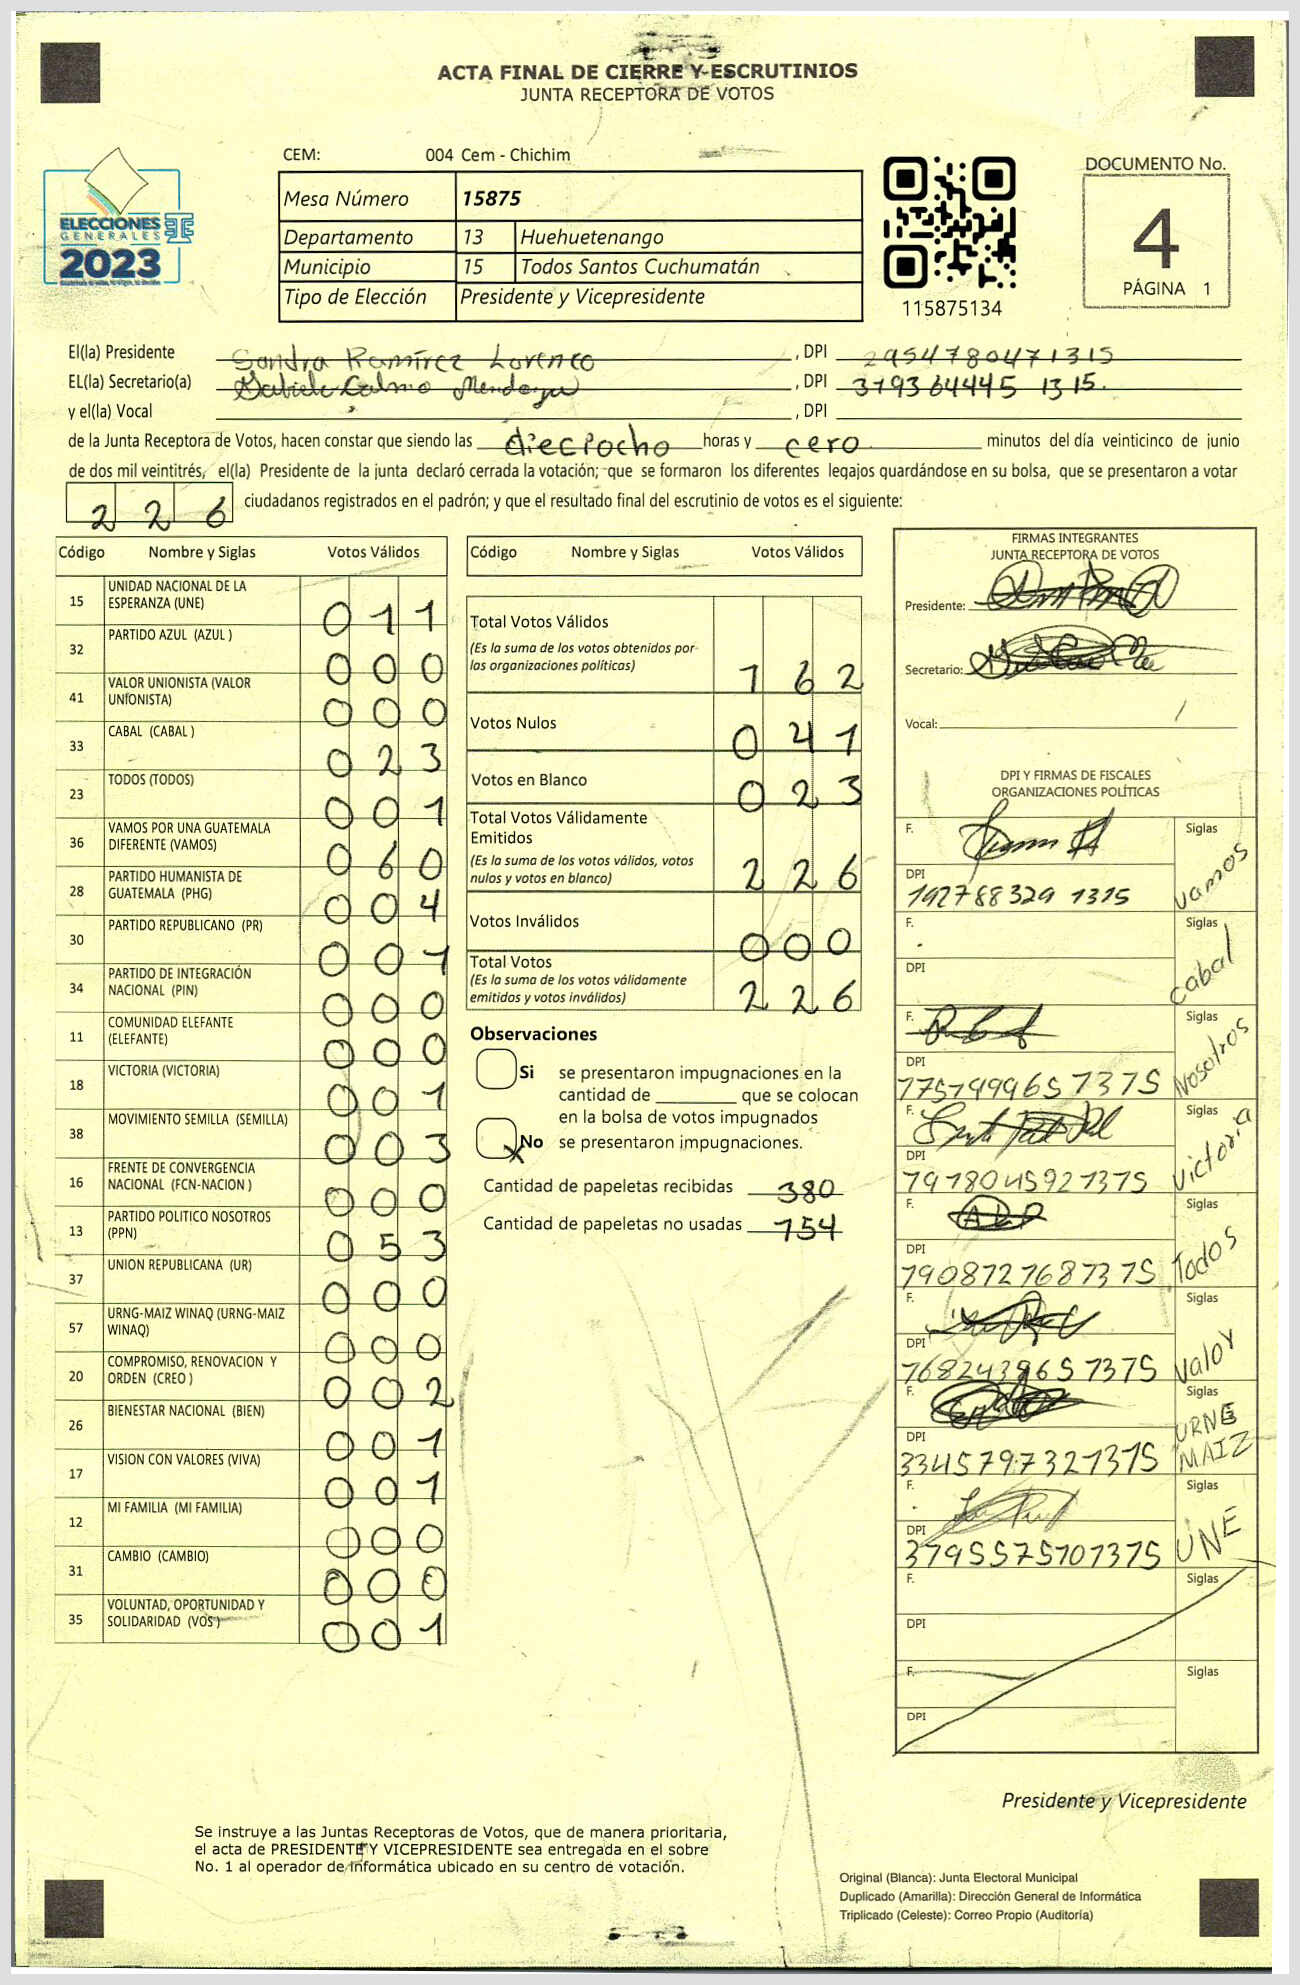 ACTA FINAL DE CIERRE Y ESCRUTINIOS
JUNTA RECEPTORA DE VOTOS
ELECCIONES
GENERALES
2023
CEM: 004 Cem - Chichim
Mesa Número 15875
Departamento 13 Huehuetenango
Municipio 15 Todos Santos Cuchumatán
Tipo de Elección Presidente y Vicepresidente
115875134
DOCUMENTO No.
4
PÁGINA 1
El(la) Presidente Sandra Ramírez Lorenzo, DPI 2954780471315
EL(la) Secretario(a) Calmo Mendoza, DPI 379364445 1315.
y el(la) Vocal , DPI
de la Junta Receptora de Votos, hacen constar que siendo las dieciocho horas y cero minutos del día veinticinco de junio
de dos mil veintitrés, el(la) Presidente de la junta declaró cerrada la votación; que se formaron los diferentes legajos quardándose en su bolsa, que se presentaron a votar
226 ciudadanos registrados en el padrón; y que el resultado final del escrutinio de votos es el siguiente:
Código Nombre y Siglas Votos Válidos
15 UNIDAD NACIONAL DE LA ESPERANZA (UNE) 011
32 PARTIDO AZUL (AZUL ) 000
41 VALOR UNIONISTA (VALOR UNIONISTA) 000
33 CABAL (CABAL ) 023
23 TODOS (TODOS) 001
36 VAMOS POR UNA GUATEMALA DIFERENTE (VAMOS) 060
28 PARTIDO HUMANISTA DE GUATEMALA (PHG) 004
30 PARTIDO REPUBLICANO (PR) 001
34 PARTIDO DE INTEGRACIÓN NACIONAL (PIN) 000
11 COMUNIDAD ELEFANTE (ELEFANTE) 000
18 VICTORIA (VICTORIA) 001
38 MOVIMIENTO SEMILLA (SEMILLA) 003
16 FRENTE DE CONVERGENCIA NACIONAL (FCN-NACION ) 000
13 PARTIDO POLITICO NOSOTROS (PPN) 053
37 UNION REPUBLICANA (UR) 000
57 URNG-MAIZ WINAQ (URNG-MAIZ WINAQ) 000
20 COMPROMISO, RENOVACION Y ORDEN (CREO ) 002
26 BIENESTAR NACIONAL (BIEN) 001
17 VISION CON VALORES (VIVA) 001
12 MI FAMILIA (MI FAMILIA) 000
31 CAMBIO (CAMBIO) 000
35 VOLUNTAD, OPORTUNIDAD Y SOLIDARIDAD (VOS ) 001
Código Nombre y Siglas Votos Válidos
Total Votos Válidos
(Es la suma de los votos obtenidos por las organizaciones políticas) 162
Votos Nulos 041
Votos en Blanco 023
Total Votos Válidamente Emitidos
(Es la suma de los votos válidos, votos nulos y votos en blanco) 226
Votos Inválidos 000
Total Votos
(Es la suma de los votos válidamente emitidos y votos inválidos) 226
Observaciones
Si se presentaron impugnaciones en la
cantidad de ________ que se colocan
en la bolsa de votos impugnados
X No se presentaron impugnaciones.
Cantidad de papeletas recibidas 380
Cantidad de papeletas no usadas 154
FIRMAS INTEGRANTES
JUNTA RECEPTORA DE VOTOS
Presidente:
Secretario:
Vocal:
DPI Y FIRMAS DE FISCALES
ORGANIZACIONES POLÍTICAS
F. Siglas
DPI 192788329 1315 Vamos
F. Siglas
DPI Cabal
F. Siglas
DPI 1757499651315 Nosotros
F. Siglas
DPI 1918045921315 Victoria
F. Siglas
DPI 1908727681315 Todos
F. Siglas
DPI 1682439651315 Valor
F. Siglas
DPI 3345797321315 URNE MAIZ
F. Siglas
DPI 3795575101315 UNE
F. Siglas
DPI
F. Siglas
DPI
Presidente y Vicepresidente
Se instruye a las Juntas Receptoras de Votos, que de manera prioritaria,
el acta de PRESIDENTE Y VICEPRESIDENTE sea entregada en el sobre
No. 1 al operador de informática ubicado en su centro de votación.
Original (Blanca): Junta Electoral Municipal
Duplicado (Amarilla): Dirección General de Informática
Triplicado (Celeste): Correo Propio (Auditoría)